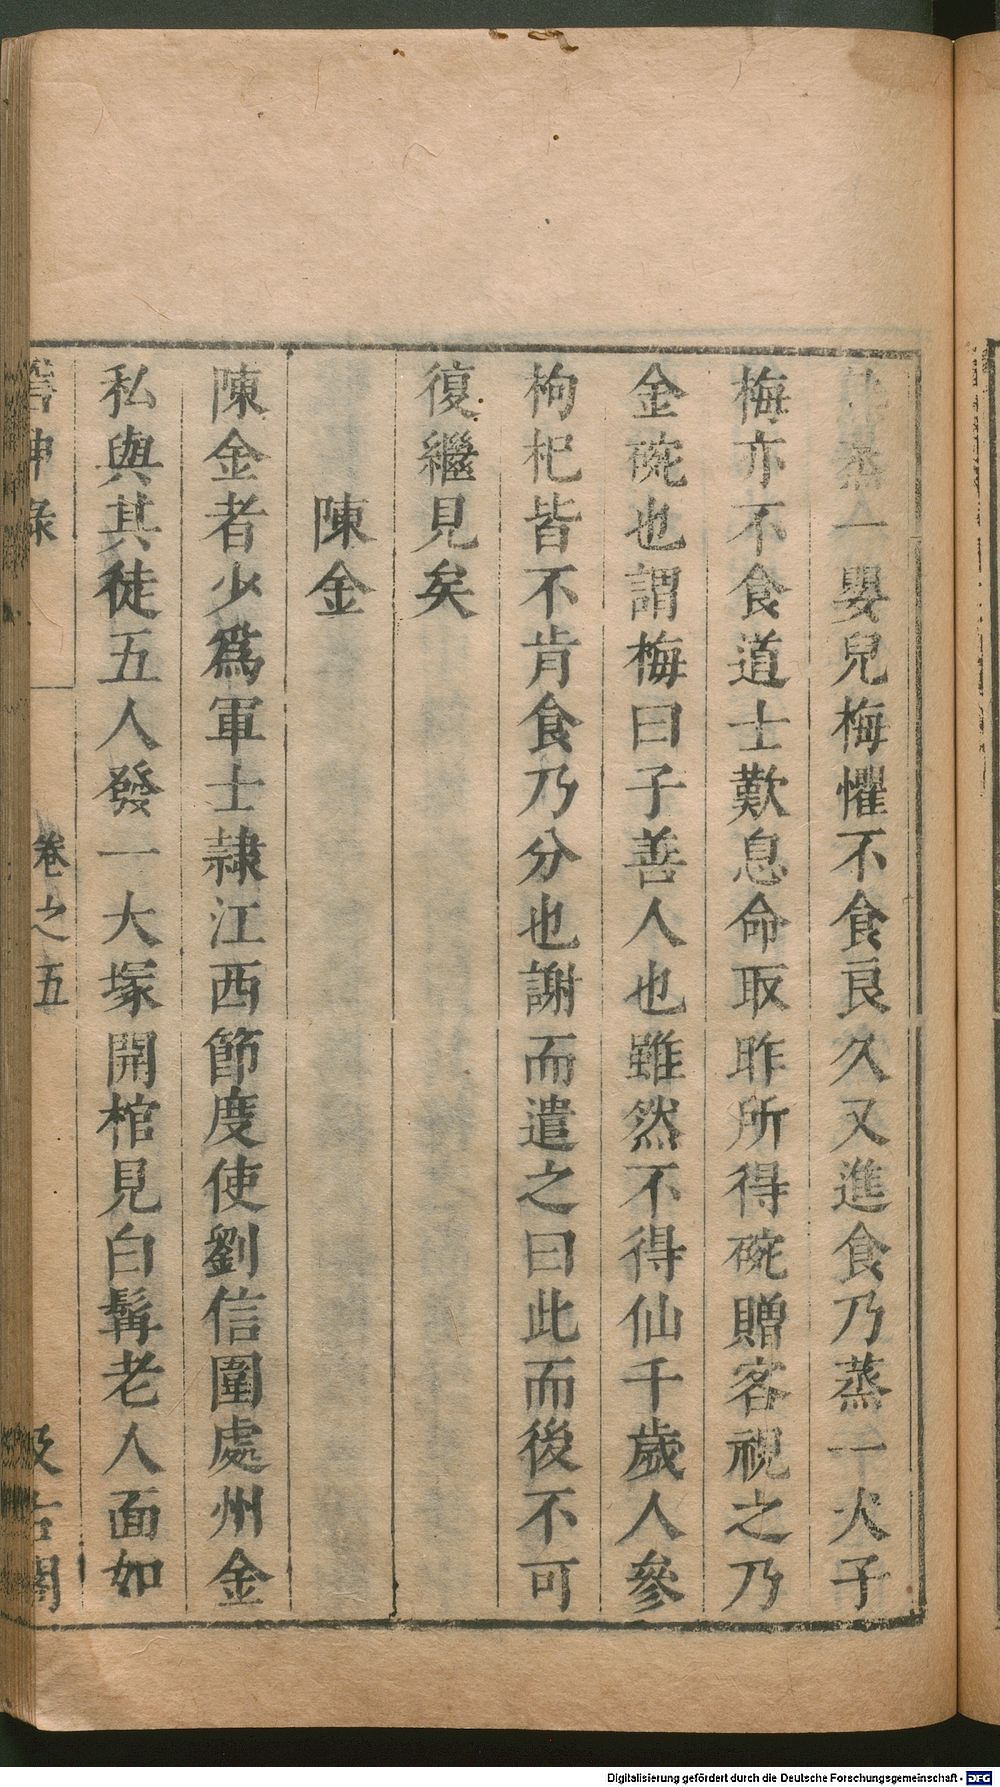 蒸一嬰兒梅懼不食良久又進食乃蒸一犬子
梅亦不食道士歎息命取昨所得碗贈客視之乃
金碗也謂梅曰子善人也雖然不得仙千歲人參
枸杞皆不肯食乃分也謝而遣之曰此而後不可
復繼見矣
陳金
陳金者少爲軍士隷江西節度使劉信圍處州金
私與其徒五人發一大塚開棺見白髯老人面如
神錄
卷之五
古閣
Digitalisierung gefördert durch die Deutsche Forschungsgemeinschaft - DFG